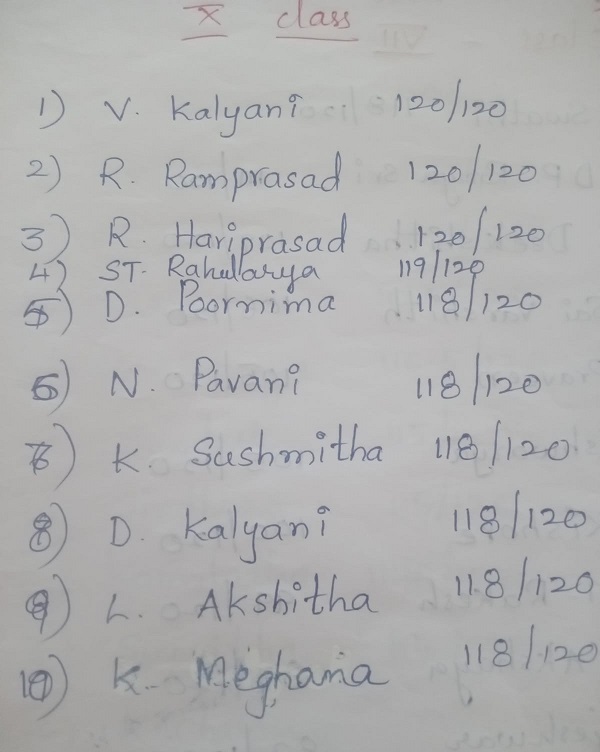 X class
1) V. Kalyani 120/120
2) R. Ramprasad 120/120
3) R. Hariprasad 120/120
4) ST. Rahularya 119/120
5) D. Poornima 118/120
6) N. Pavani 118/120
7) K. Sushmitha 118/120
8) D. Kalyani 118/120
9) L. Akshitha 118/120
10) K. Meghana 118/120